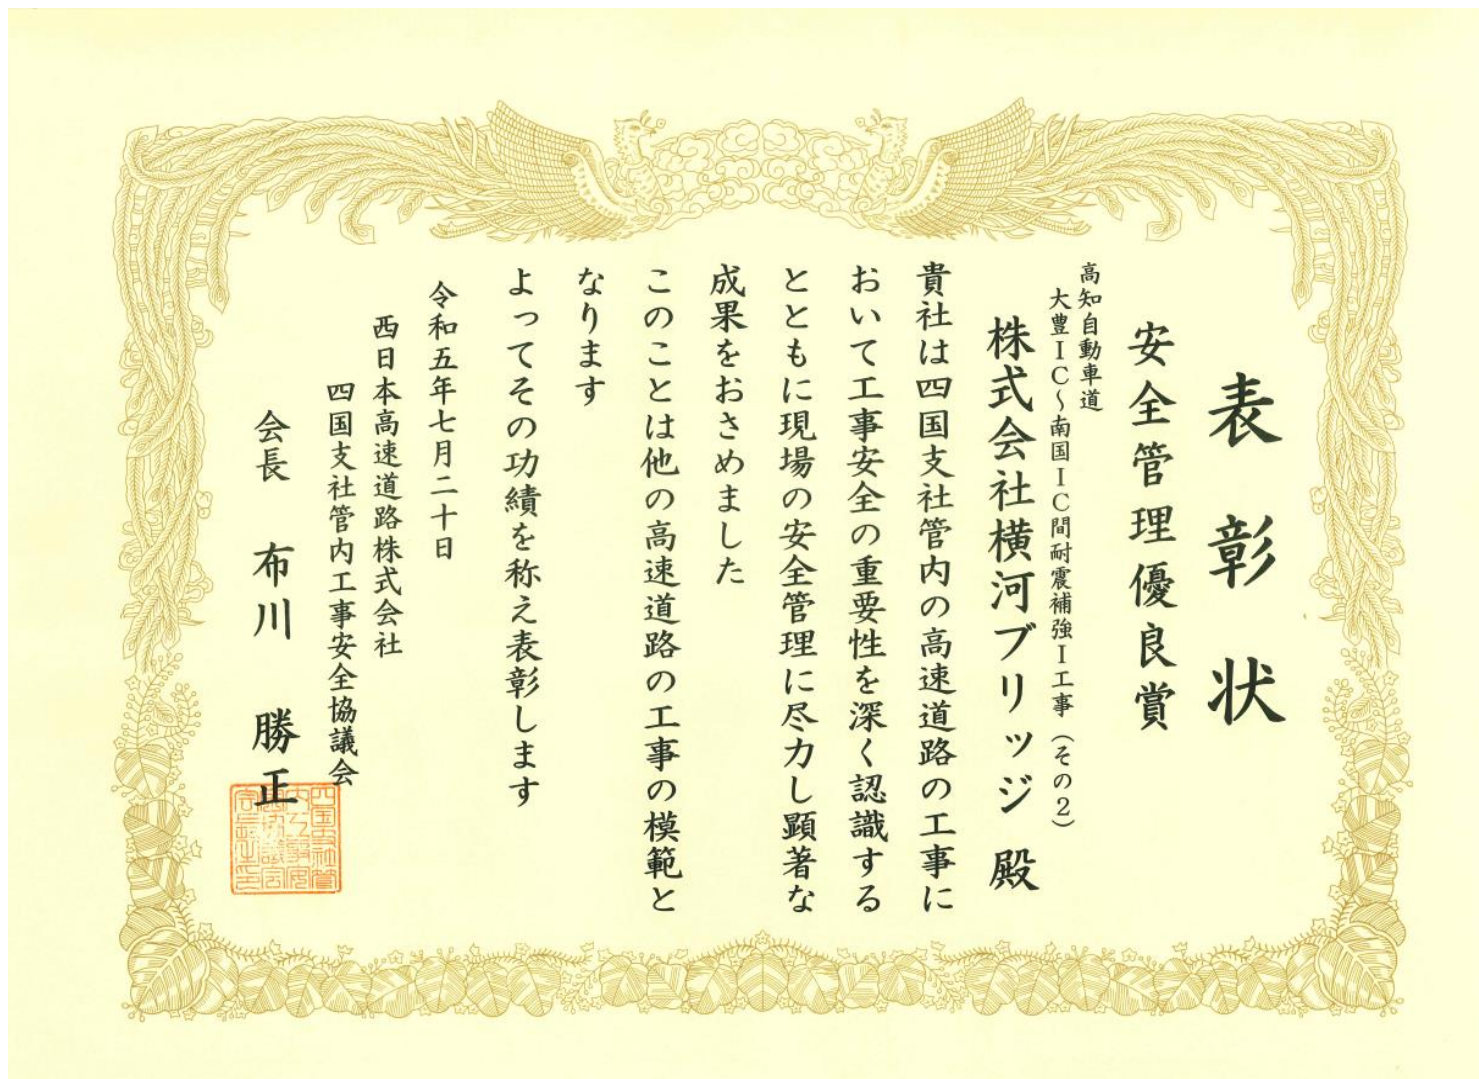 表彰状
安全管理優良賞
高知自動車道
大豊IC～南国IC間耐震補強I工事（その2）
株式会社横河ブリッジ 殿
貴社は四国支社管内の高速道路の工事に
おいて工事安全の重要性を深く認識する
とともに現場の安全管理に尽力し顕著な
成果をおさめました
このことは他の高速道路の工事の模範と
なります
よってその功績を称え表彰します
令和五年七月二十日
西日本高速道路株式会社
四国支社管内工事安全協議会
会長 布川 勝正